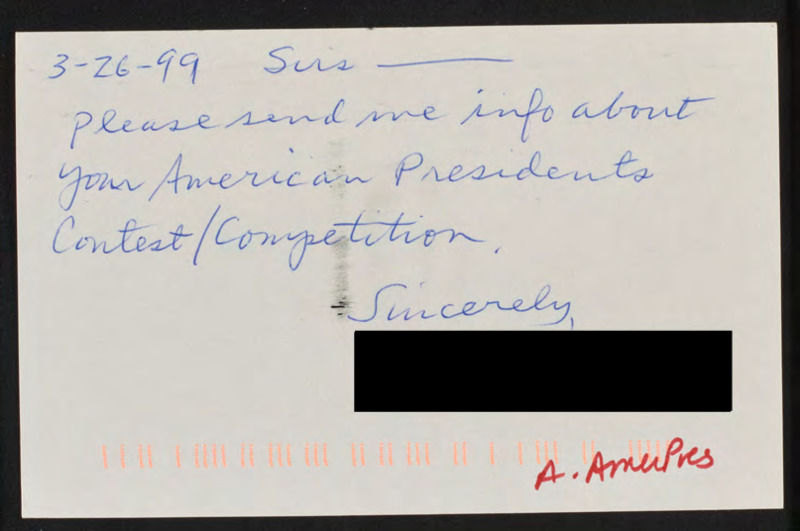 3-26-99 Sirs —
please send me info about
your American Presidents
Contest/Competition.
Sincerely,
A. AmerPres